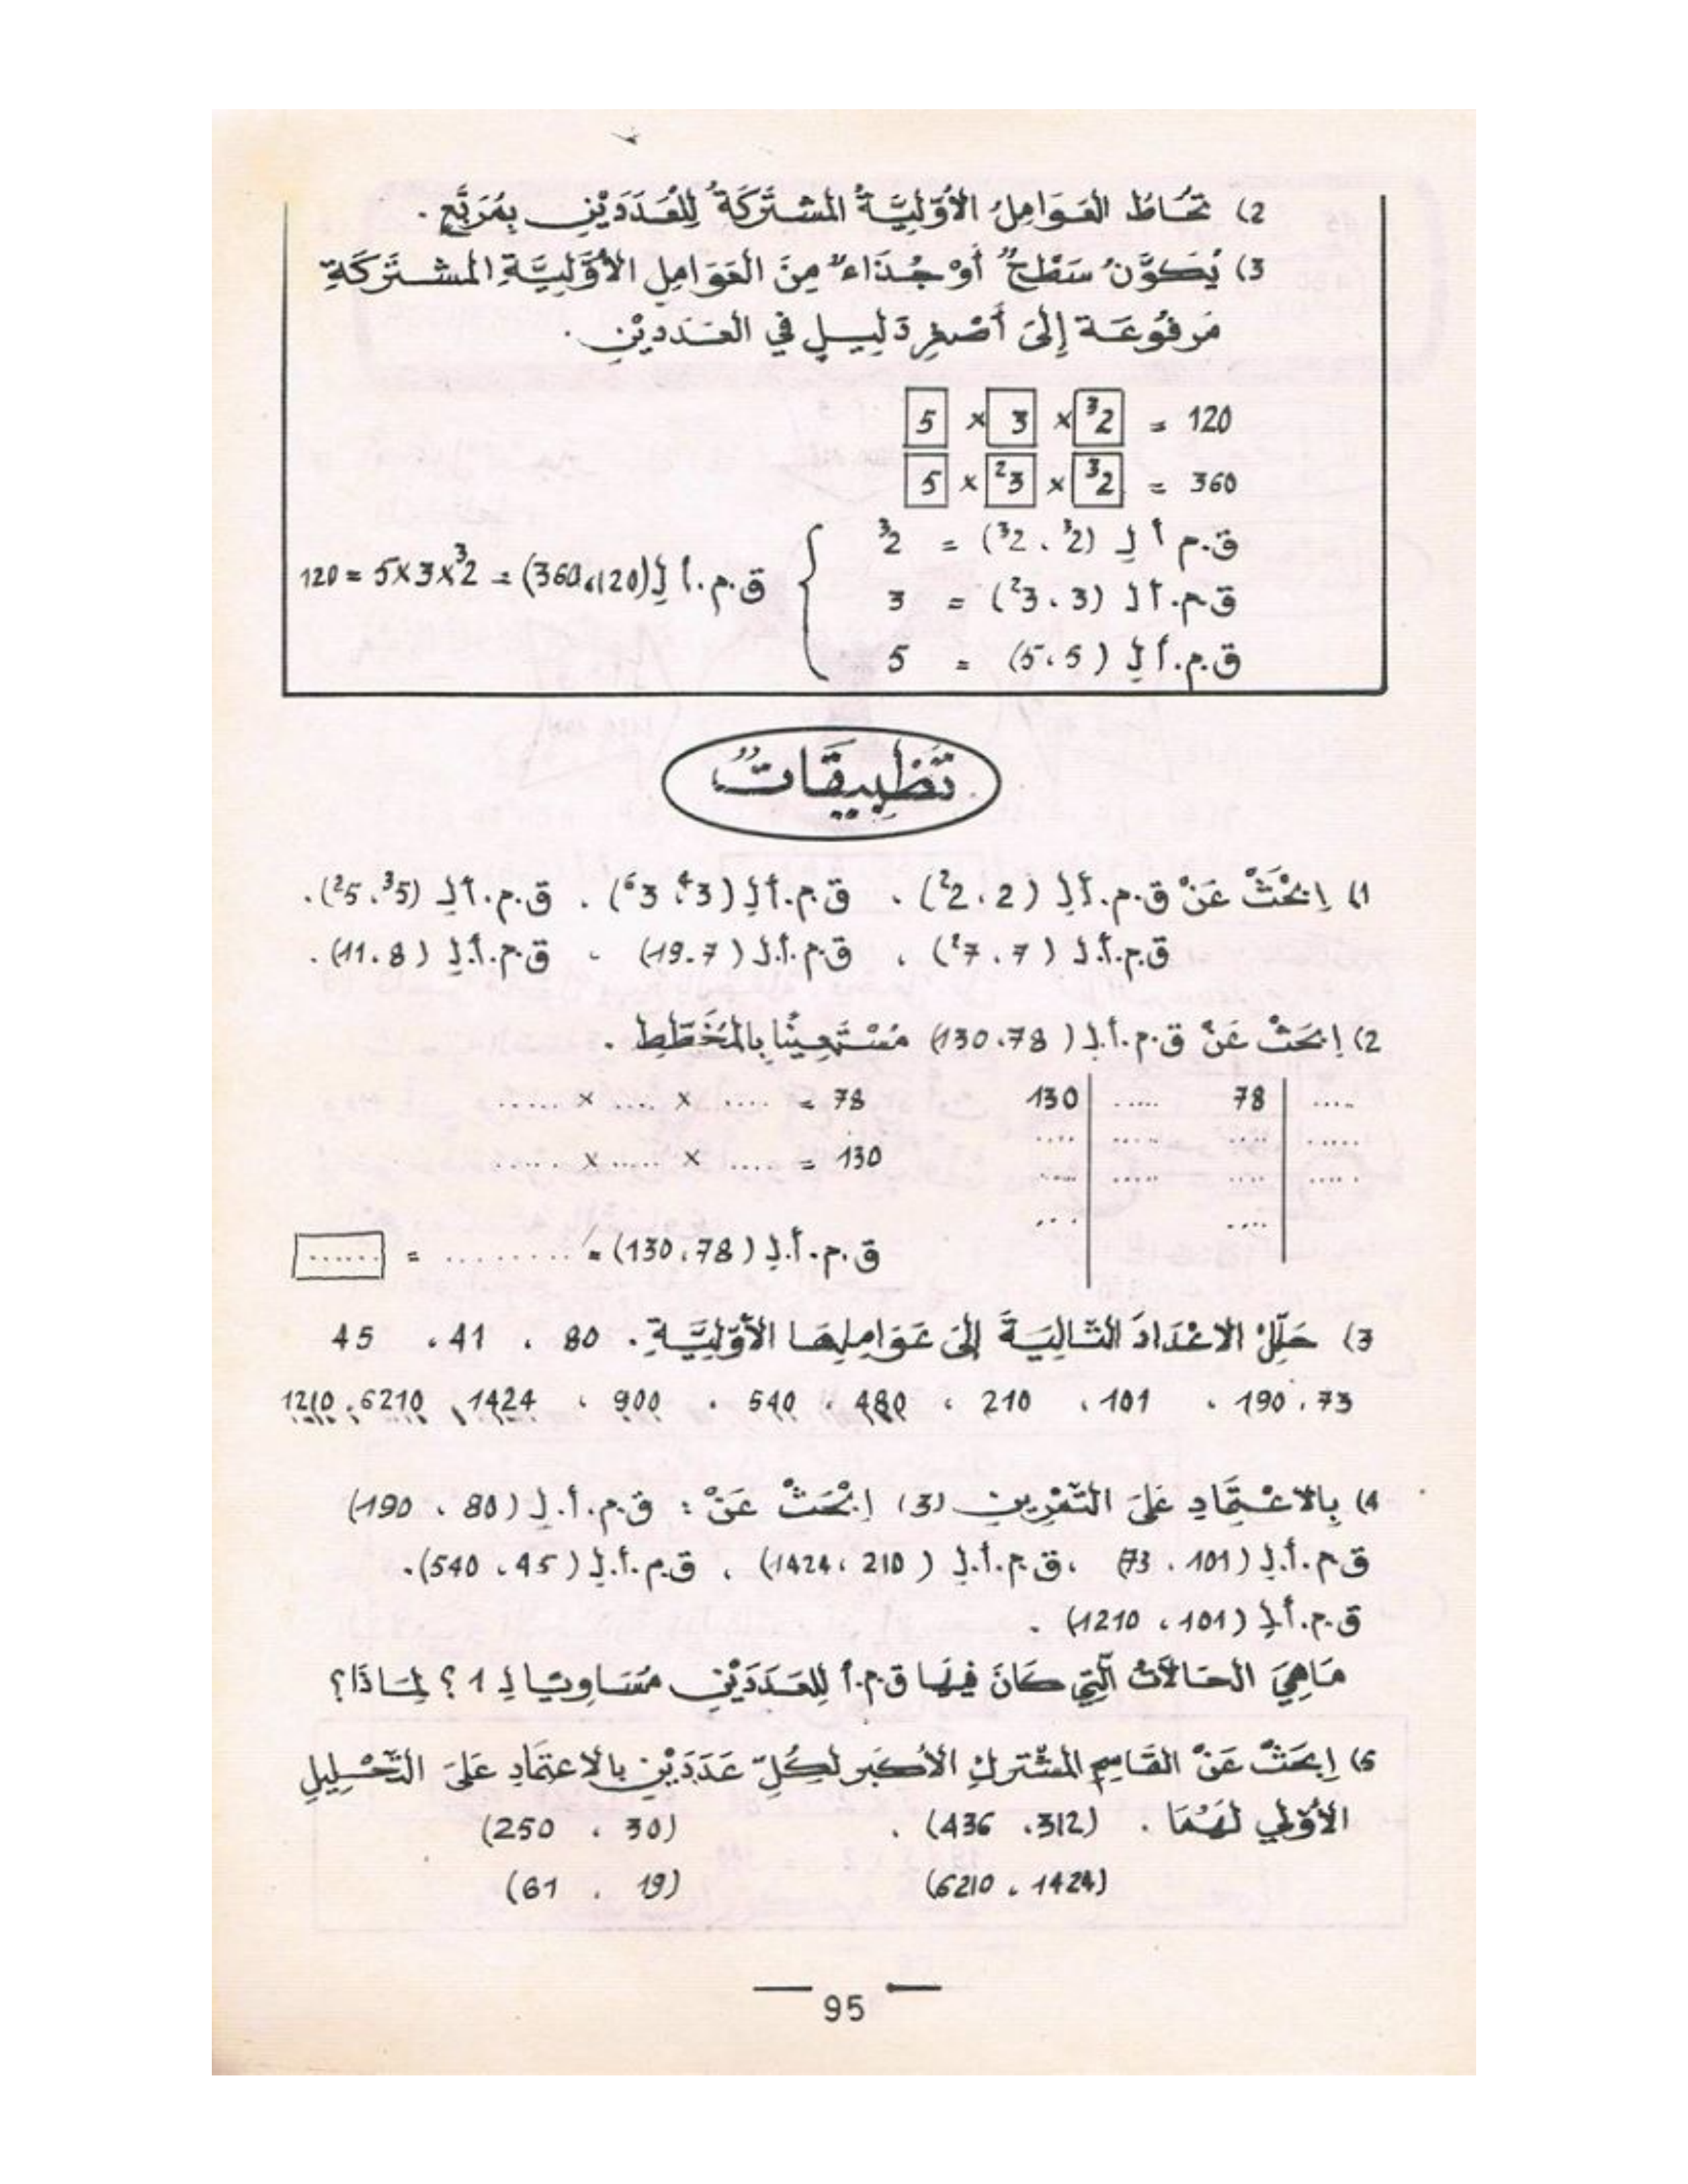 2) تُحَاطُ العَوَامِلُ الأَوَّلِيَّةُ المُشْتَرَكَةُ لِلْعَدَدَيْنِ بِمُرَبَّعٍ .
3) يُكَوَّنُ سَطْحٌ أَوْ جُذَاءٌ مِنَ العَوَامِلِ الأَوَّلِيَّةِ المشْتَرَكَةِ
مَرفُوعَة إِلَى أَصْغَرِ دَلِيلٍ في العَدَديْنِ .
120 = ³2 × 3 × 5
360 = ³2 × ²3 × 5
ق.م أ لِ (³2 ، ³2) = ³2
ق.م.أ لِ (3 ، ²3) = 3
ق.م.أ لِ (5 ، 5) = 5
ق.م.أ لِ (120 ، 360) = ³2×3×5 = 120
تَطْبِيقَاتٌ
1) اِبْحَثْ عَنْ ق.م.أ لِ (2 ، ²2) ، ق.م.أ لِ (⁴3 ، ⁶3) ، ق.م.أ لِ (³5 ، ²5) .
ق.م.أ.لِ (7 ، ²7) ، ق.م.أ.لِ (7 ، 19) ، ق.م.أ.لِ (8 ، 11) .
2) اِبحَثْ عَنْ ق.م.أ.لِ (78 ، 130) مُسْتَعِينًا بِالمُخَطَّطِ .
78 | .....   130 | .....
78 = .... × .... × .....
130 = .... × ..... × .....
ق.م.أ.لِ (78 ، 130) = ......... = ......
3) حَلِّلْ الاعْدَادَ التَّالِيَةَ إِلَى عَوَامِلِهَا الأَوَّلِيَّةِ . 80 ، 41 ، 45
73 ، 190 ، 101 ، 210 ، 480 ، 540 ، 900 ، 1424 ، 6210 ، 1210
4) بِالاعْتِمَادِ عَلَى التَّمْرِينِ (3) اِبْحَثْ عَنْ : ق.م.أ.لِ (80 ، 190)
ق.م.أ.لِ (101 ، 73) ، ق.م.أ.لِ (210 ، 1424) ، ق.م.أ.لِ (45 ، 540) .
ق.م.أ لِ (101 ، 1210) .
مَاهِيَ الحَالَاتُ الَّتِي كَانَ فِيهَا ق.م.أ لِلعَدَدَيْنِ مُسَاوِيًا لِـ 1 ؟ لِمَاذَا؟
5) اِبحَثْ عَنْ القَاسِمِ المشْتركِ الأكبَر لِكُلِّ عَدَدَيْنِ بالاعتِمَادِ عَلَى التَّحْلِيلِ
الأَوَّلِي لَهُمَا . (312 ، 436) . (30 ، 250)
(1424 ، 6210) (19 ، 61)
95